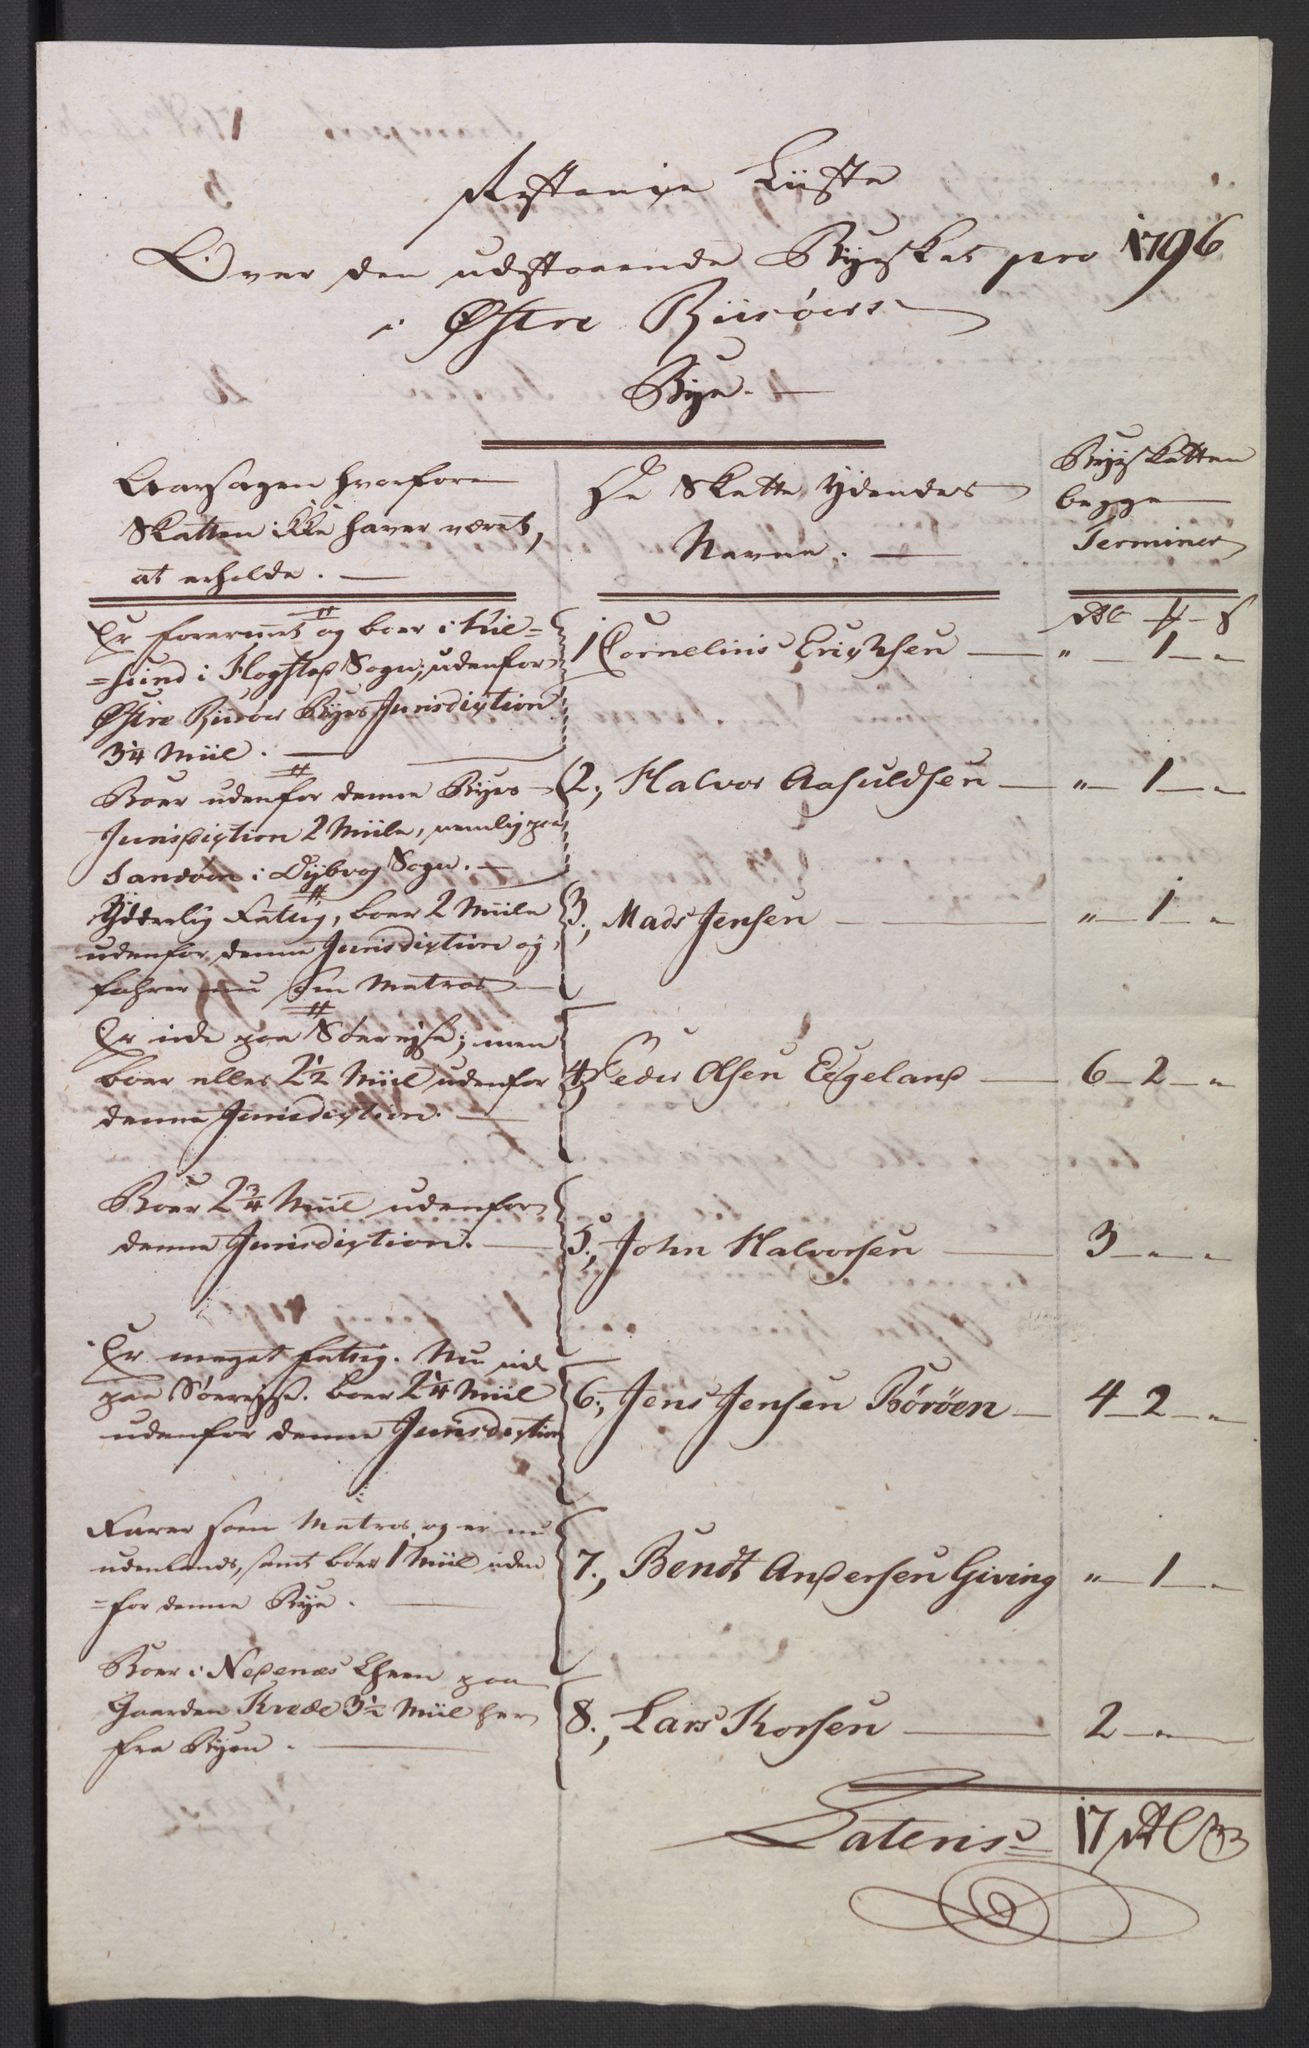 Restance Liiste
Over den udstaaende Byeskat pro 1796
i Østre Riisöers
Bye.
Aarsagen hvorfore
Skatten ikke haver været,
at erholde.
De Skatte Ydendes
Navne.
Byeskatten
begge
Terminer
Rdl ß
Er forarmet og boer i
sund i Flogstad Sogn, udenfor
Østre Riisöer Byes Jurisdiction
3¼ Miil.
1 Cornelius Erichsen — " — 1 — "
Boer udenfor denne Byes
Jurisdiction 2 Miile, nemlig paa
Sandöen i Dybvog Sogn.
2., Halvor Aasuldsen — " — 1 — "
Yderlig Fattig, boer 2 Miile
udenfor denne Jurisdiction og
fahrer nu som Matros
3., Mads Jensen — " — 1 — "
Er ude paa Söereyse; men
boer elles 2½ Miil udenfor
denne Jurisdiction.
4., Peder Olsen Eegeland — 6 — 2 — "
Boer 2¾ Miil udenfor
denne Jurisdiction.
5., John Halvorsen — 3 — " — "
Er meget fattig. Nu ude
paa Söereyse. boer 2¼ Miil
udenfor denne Jurisdiction
6., Jens Jensen Böröen — 4 — 2 — "
Farer som Matros, og er nu
udenlands, samt boer 1 Miil uden
=for denne Bye.
7., Bendt Andersen Giving " — 1 — "
Boer i Nedenæs Lehen paa
Gaarden 3½ Miil her
fra Byen.
8., Lars Korsen — 2 — "
Lateris 17 Rdl